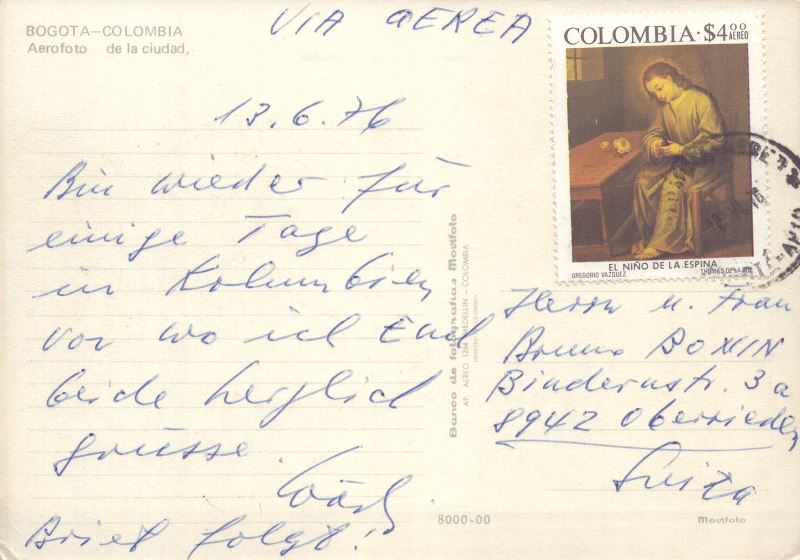 BOGOTA—COLOMBIA
Aerofoto de la ciudad,
VIA AEREA
COLOMBIA·$4.00
AEREO
EL NIÑO DE LA ESPINA
GREGORIO VAZQUEZ THOMAS DE LA RUE
13.6.76
Bin wieder für
einige Tage
in Kolumbien
von wo ich Euch
beide herzlich
grüsse.
Brief folgt!
Banco de fotografías Movifoto
AP. AEREO 1254 MEDELLIN - COLOMBIA
Herrn u. Frau
Bruno BONIN
Bindernstr. 3a
8942 Oberrieden
Suiza
8000-00
Movifoto